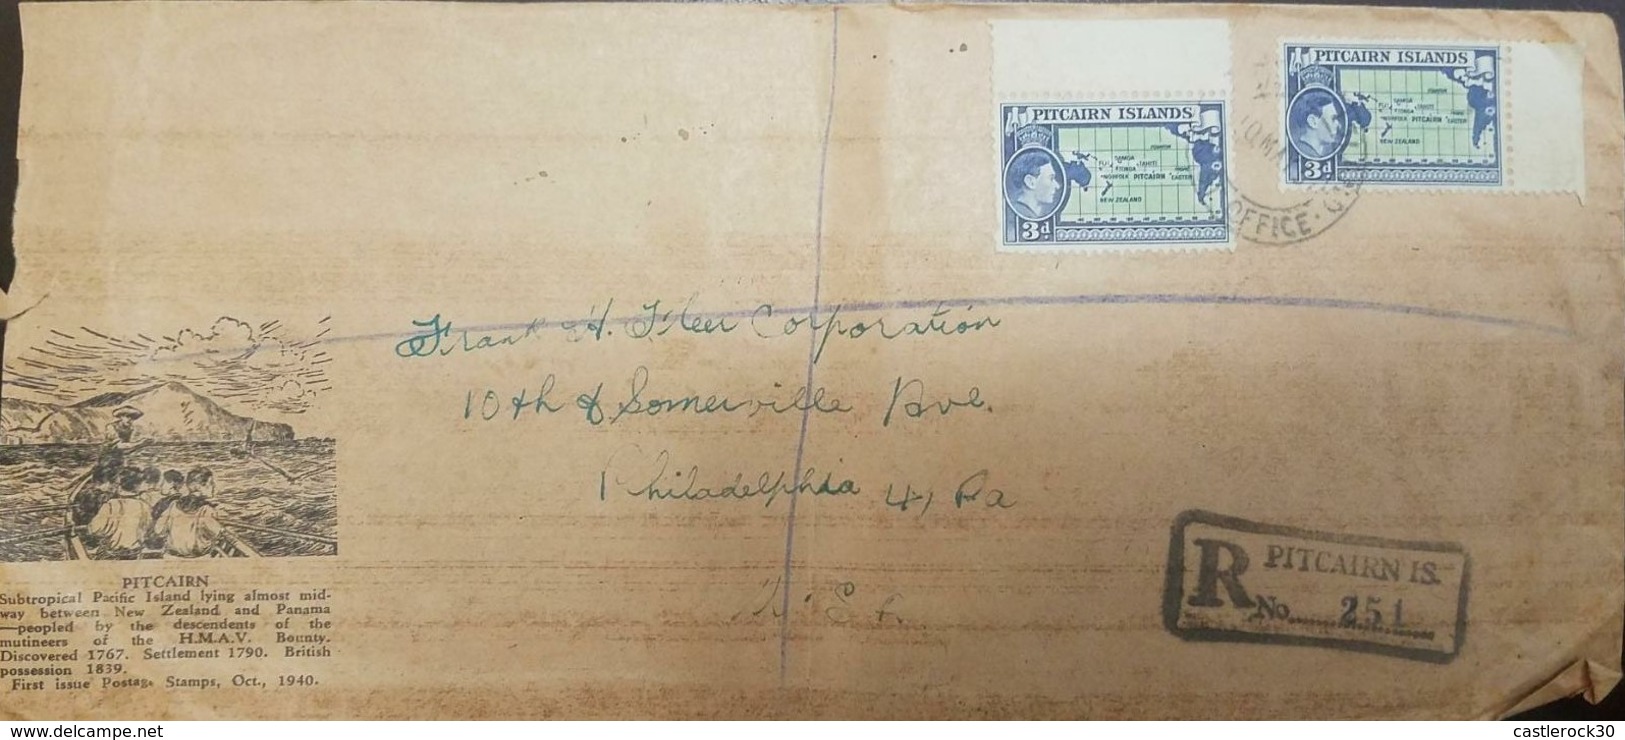 PITCAIRN ISLANDS
SAMOA
TAHITI
TONGA
NORFOLK PITCAIRN EASTER
NEW ZEALAND
3d.
PITCAIRN ISLANDS
SAMOA
TAHITI
TONGA
NORFOLK PITCAIRN EASTER
NEW ZEALAND
3d.
OFFICE
Frank H. Fleer Corporation
10th & Somerville Ave.
Philadelphia 41, Pa
R PITCAIRN IS.
No. 251
PITCAIRN
Subtropical Pacific Island lying almost mid-
way between New Zealand and Panama
—peopled by the descendents of the
mutineers of the H.M.A.V. Bounty.
Discovered 1767. Settlement 1790. British
possession 1839.
First issue Postage Stamps, Oct., 1940.
castlerock30